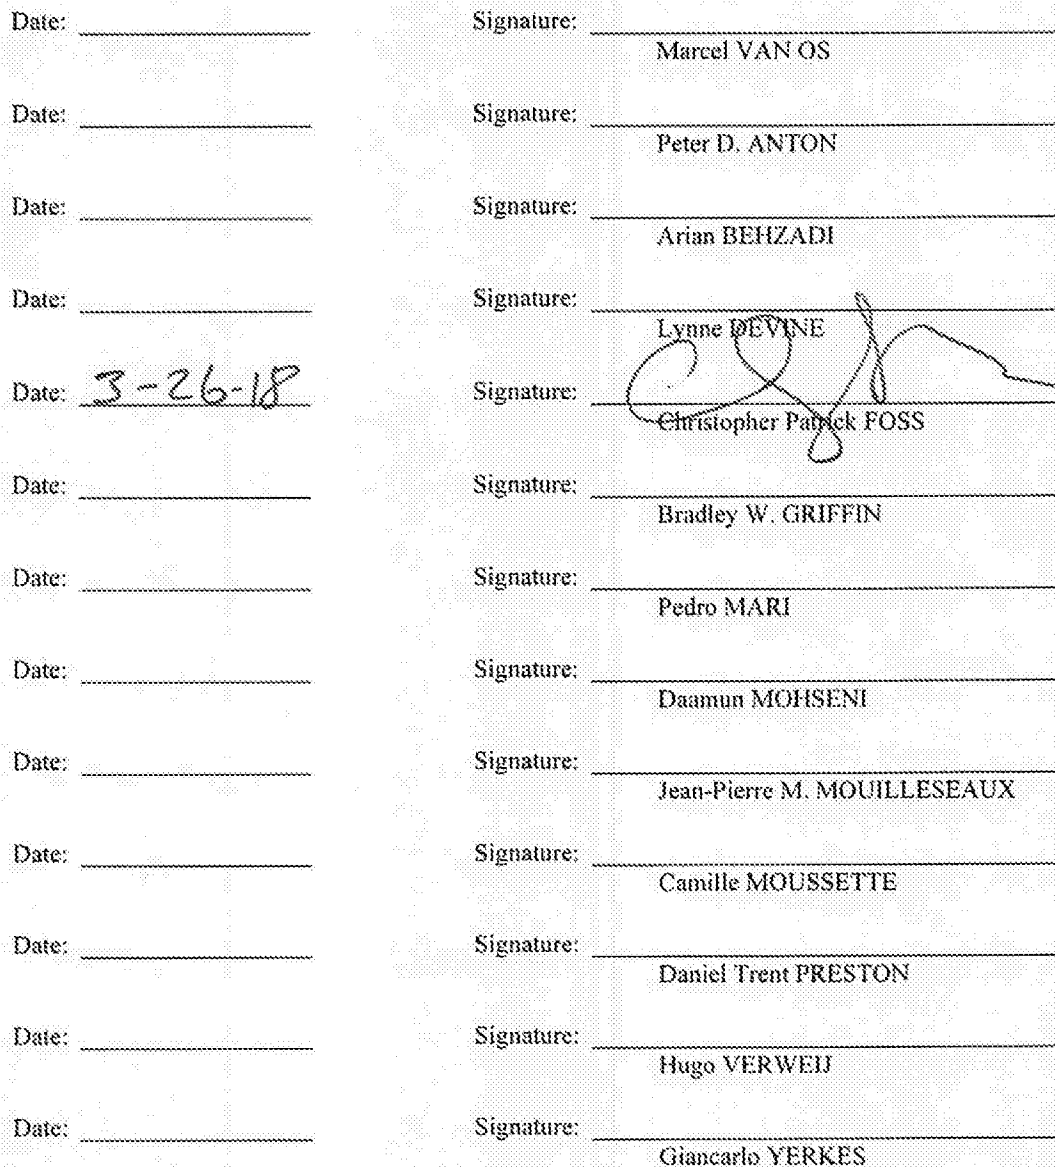 Date: Signature:
Marcel VAN OS
Date: Signature:
Peter D. ANTON
Date: Signature:
Arian BEHZADI
Date: Signature:
Lynne DEVINE
Date: 3-26-18 Signature:
Christopher Patrick FOSS
Date: Signature:
Bradley W. GRIFFIN
Date: Signature:
Pedro MARI
Date: Signature:
Daamun MOHSENI
Date: Signature:
Jean-Pierre M. MOUILLESEAUX
Date: Signature:
Camille MOUSSETTE
Date: Signature:
Daniel Trent PRESTON
Date: Signature:
Hugo VERWEIJ
Date: Signature:
Giancarlo YERKES